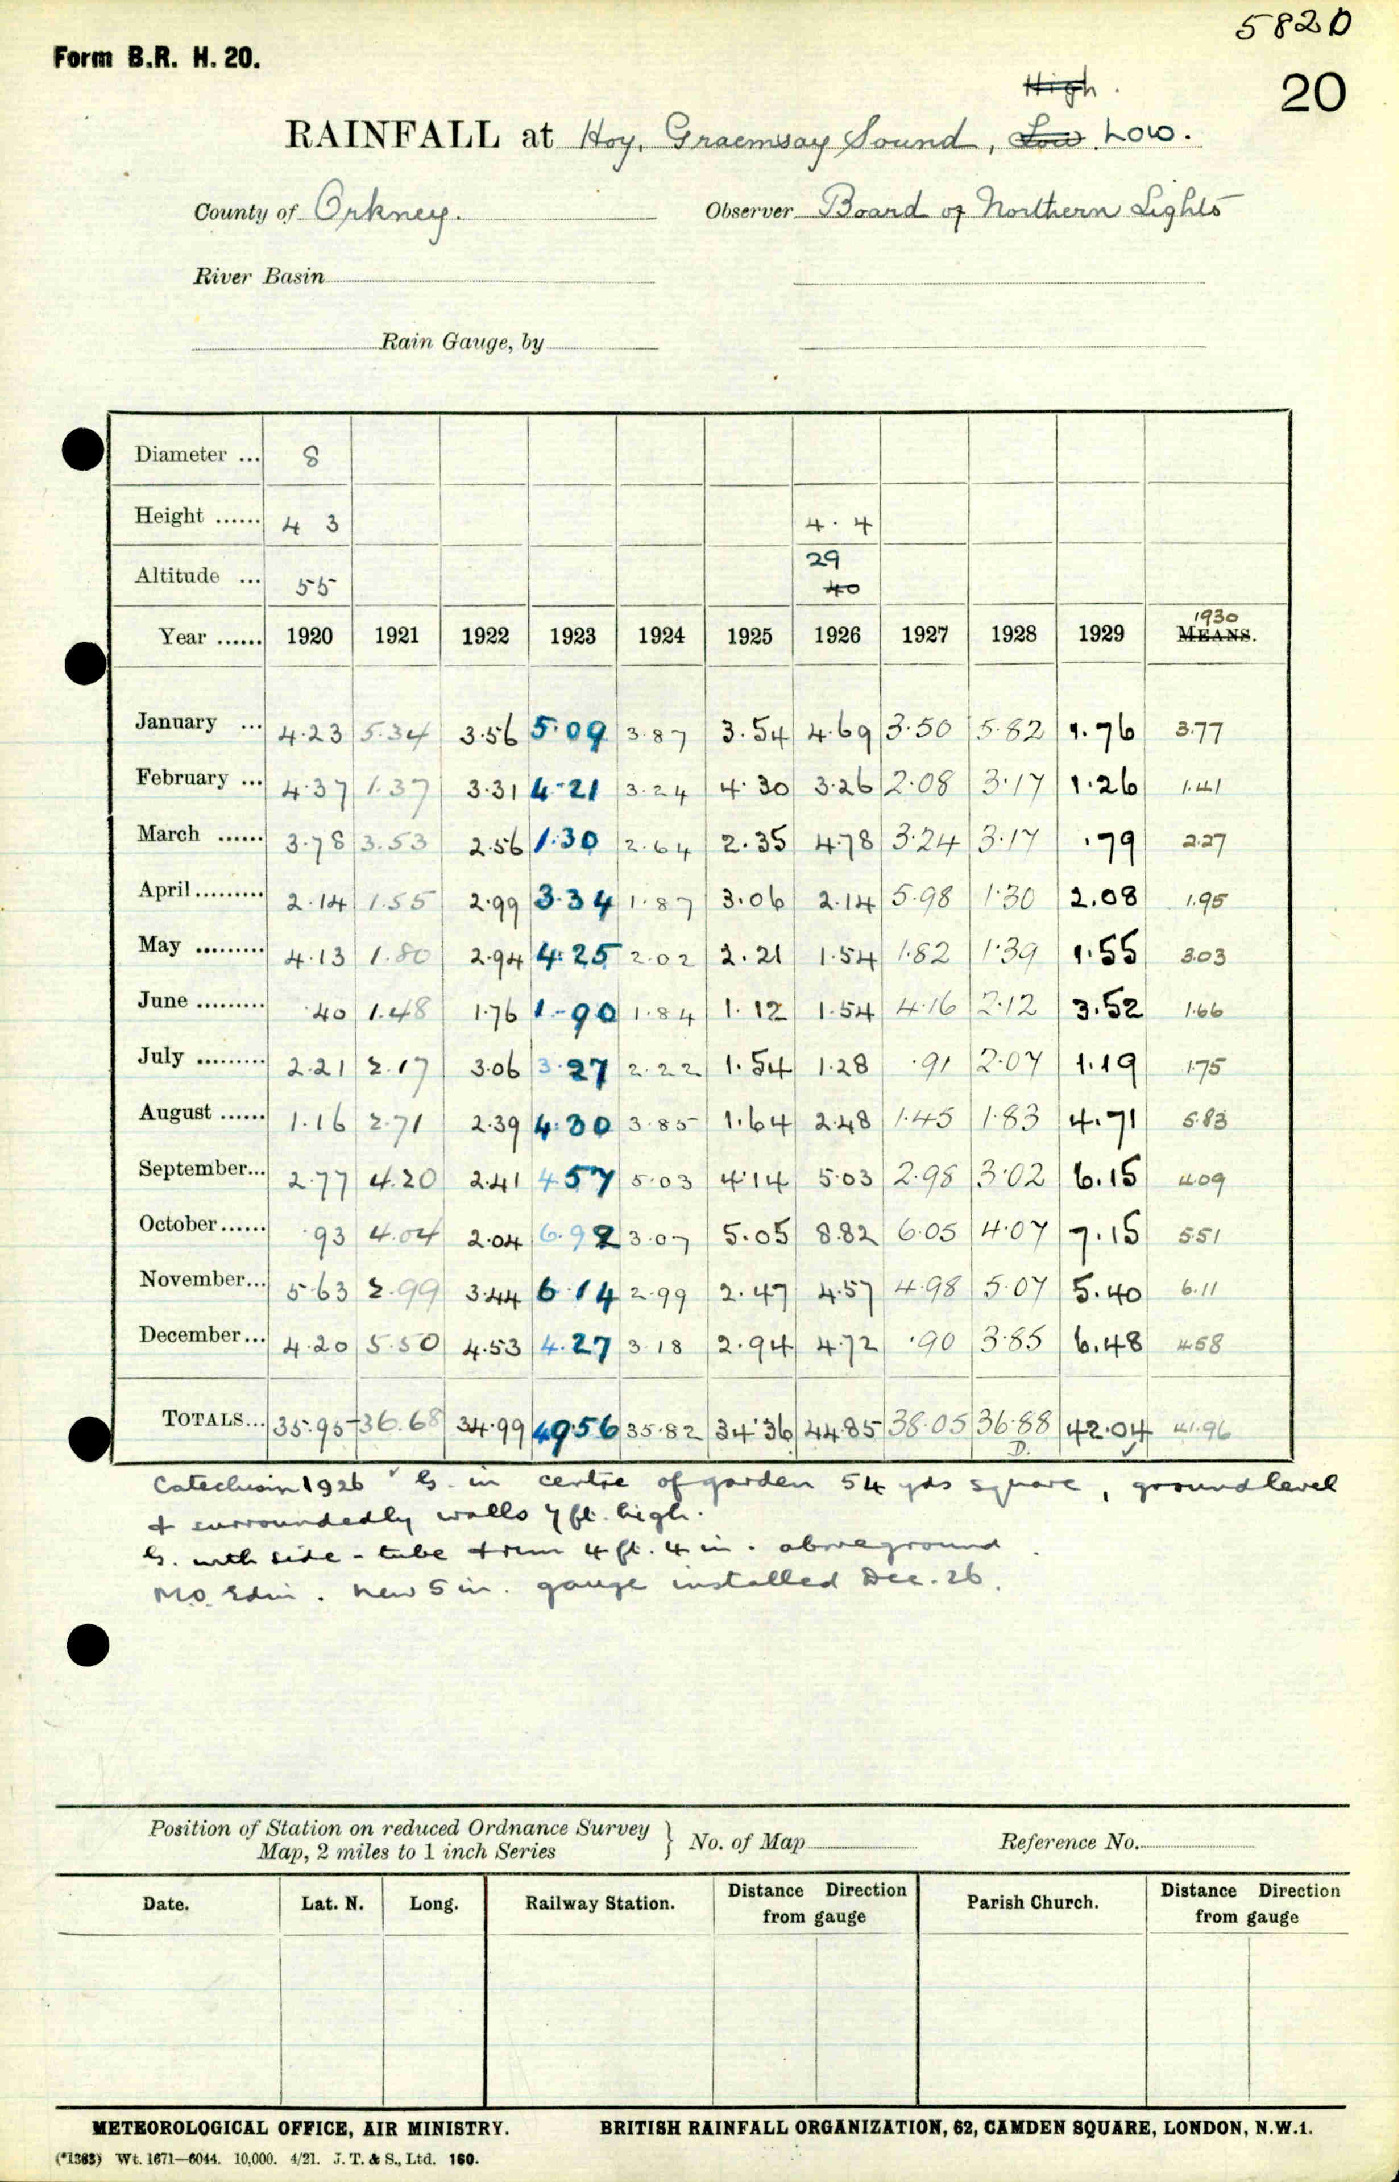 5820
Form B.R. H. 20.
20
High
RAINFALL at Hoy, Graemsay Sound, Low Low.
County of Orkney. Observer Board of Northern Lights
River Basin
Rain Gauge, by
Diameter ... 8
Height ...... 4 3 4. 4
29
Altitude ... 55 40
1930
Year ...... 1920 1921 1922 1923 1924 1925 1926 1927 1928 1929 MEANS.
January ... 4.23 5.34 3.56 5.09 3.87 3.54 4.69 3.50 5.82 1.76 3.77
February ... 4.37 1.37 3.31 4.21 3.24 4.30 3.26 2.08 3.17 1.26 1.41
March ...... 3.78 3.53 2.56 1.30 2.64 2.35 4.78 3.24 3.17 .79 2.27
April......... 2.14 1.55 2.99 3.34 1.87 3.06 2.14 5.98 1.30 2.08 1.95
May ......... 4.13 1.80 2.94 4.25 2.02 2.21 1.54 1.82 1.39 1.55 3.03
June ......... .40 1.48 1.76 1.90 1.84 1.12 1.54 4.16 2.12 3.52 1.66
July ......... 2.21 2.17 3.06 3.27 2.22 1.54 1.28 .91 2.07 1.19 1.75
August ...... 1.16 2.71 2.39 4.30 3.85 1.64 2.48 1.45 1.83 4.71 5.83
September... 2.77 4.20 2.41 4.57 5.03 4.14 5.03 2.98 3.02 6.15 4.09
October...... .93 4.04 2.04 6.92 3.07 5.05 8.82 6.05 4.07 7.15 5.51
November... 5.63 2.99 3.44 6.14 2.99 2.47 4.57 4.98 5.07 5.40 6.11
December... 4.20 5.50 4.53 4.27 3.18 2.94 4.72 .90 3.85 6.48 4.58
TOTALS... 35.95 36.68 34.99 49.56 35.82 34.36 44.85 38.05 36.88 42.04 41.96
D. ✓
1926 G. in centre of garden 54 yds square, ground level
& surroundedly walls 7 ft. high.
G. with side-tube 4 ft. 4 in. aboveground.
M.O. Edin. new 5 in. gauge installed Dec. 26.
Position of Station on reduced Ordnance Survey
Map, 2 miles to 1 inch Series } No. of Map Reference No.
Date. Lat. N. Long. Railway Station. Distance Direction from gauge Parish Church. Distance Direction from gauge
METEOROLOGICAL OFFICE, AIR MINISTRY. BRITISH RAINFALL ORGANIZATION, 62, CAMDEN SQUARE, LONDON, N.W.1.
(*1363) Wt. 1671—6044. 10,000. 4/21. J. T. & S., Ltd. 160.